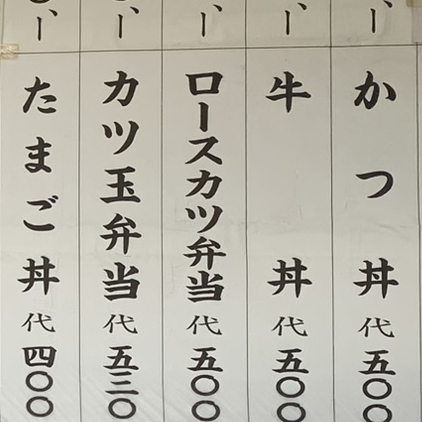 かつ丼代五〇〇
牛丼代五〇〇
ロースカツ弁当代五〇〇
カツ玉弁当代五三〇
たまご丼代四〇〇